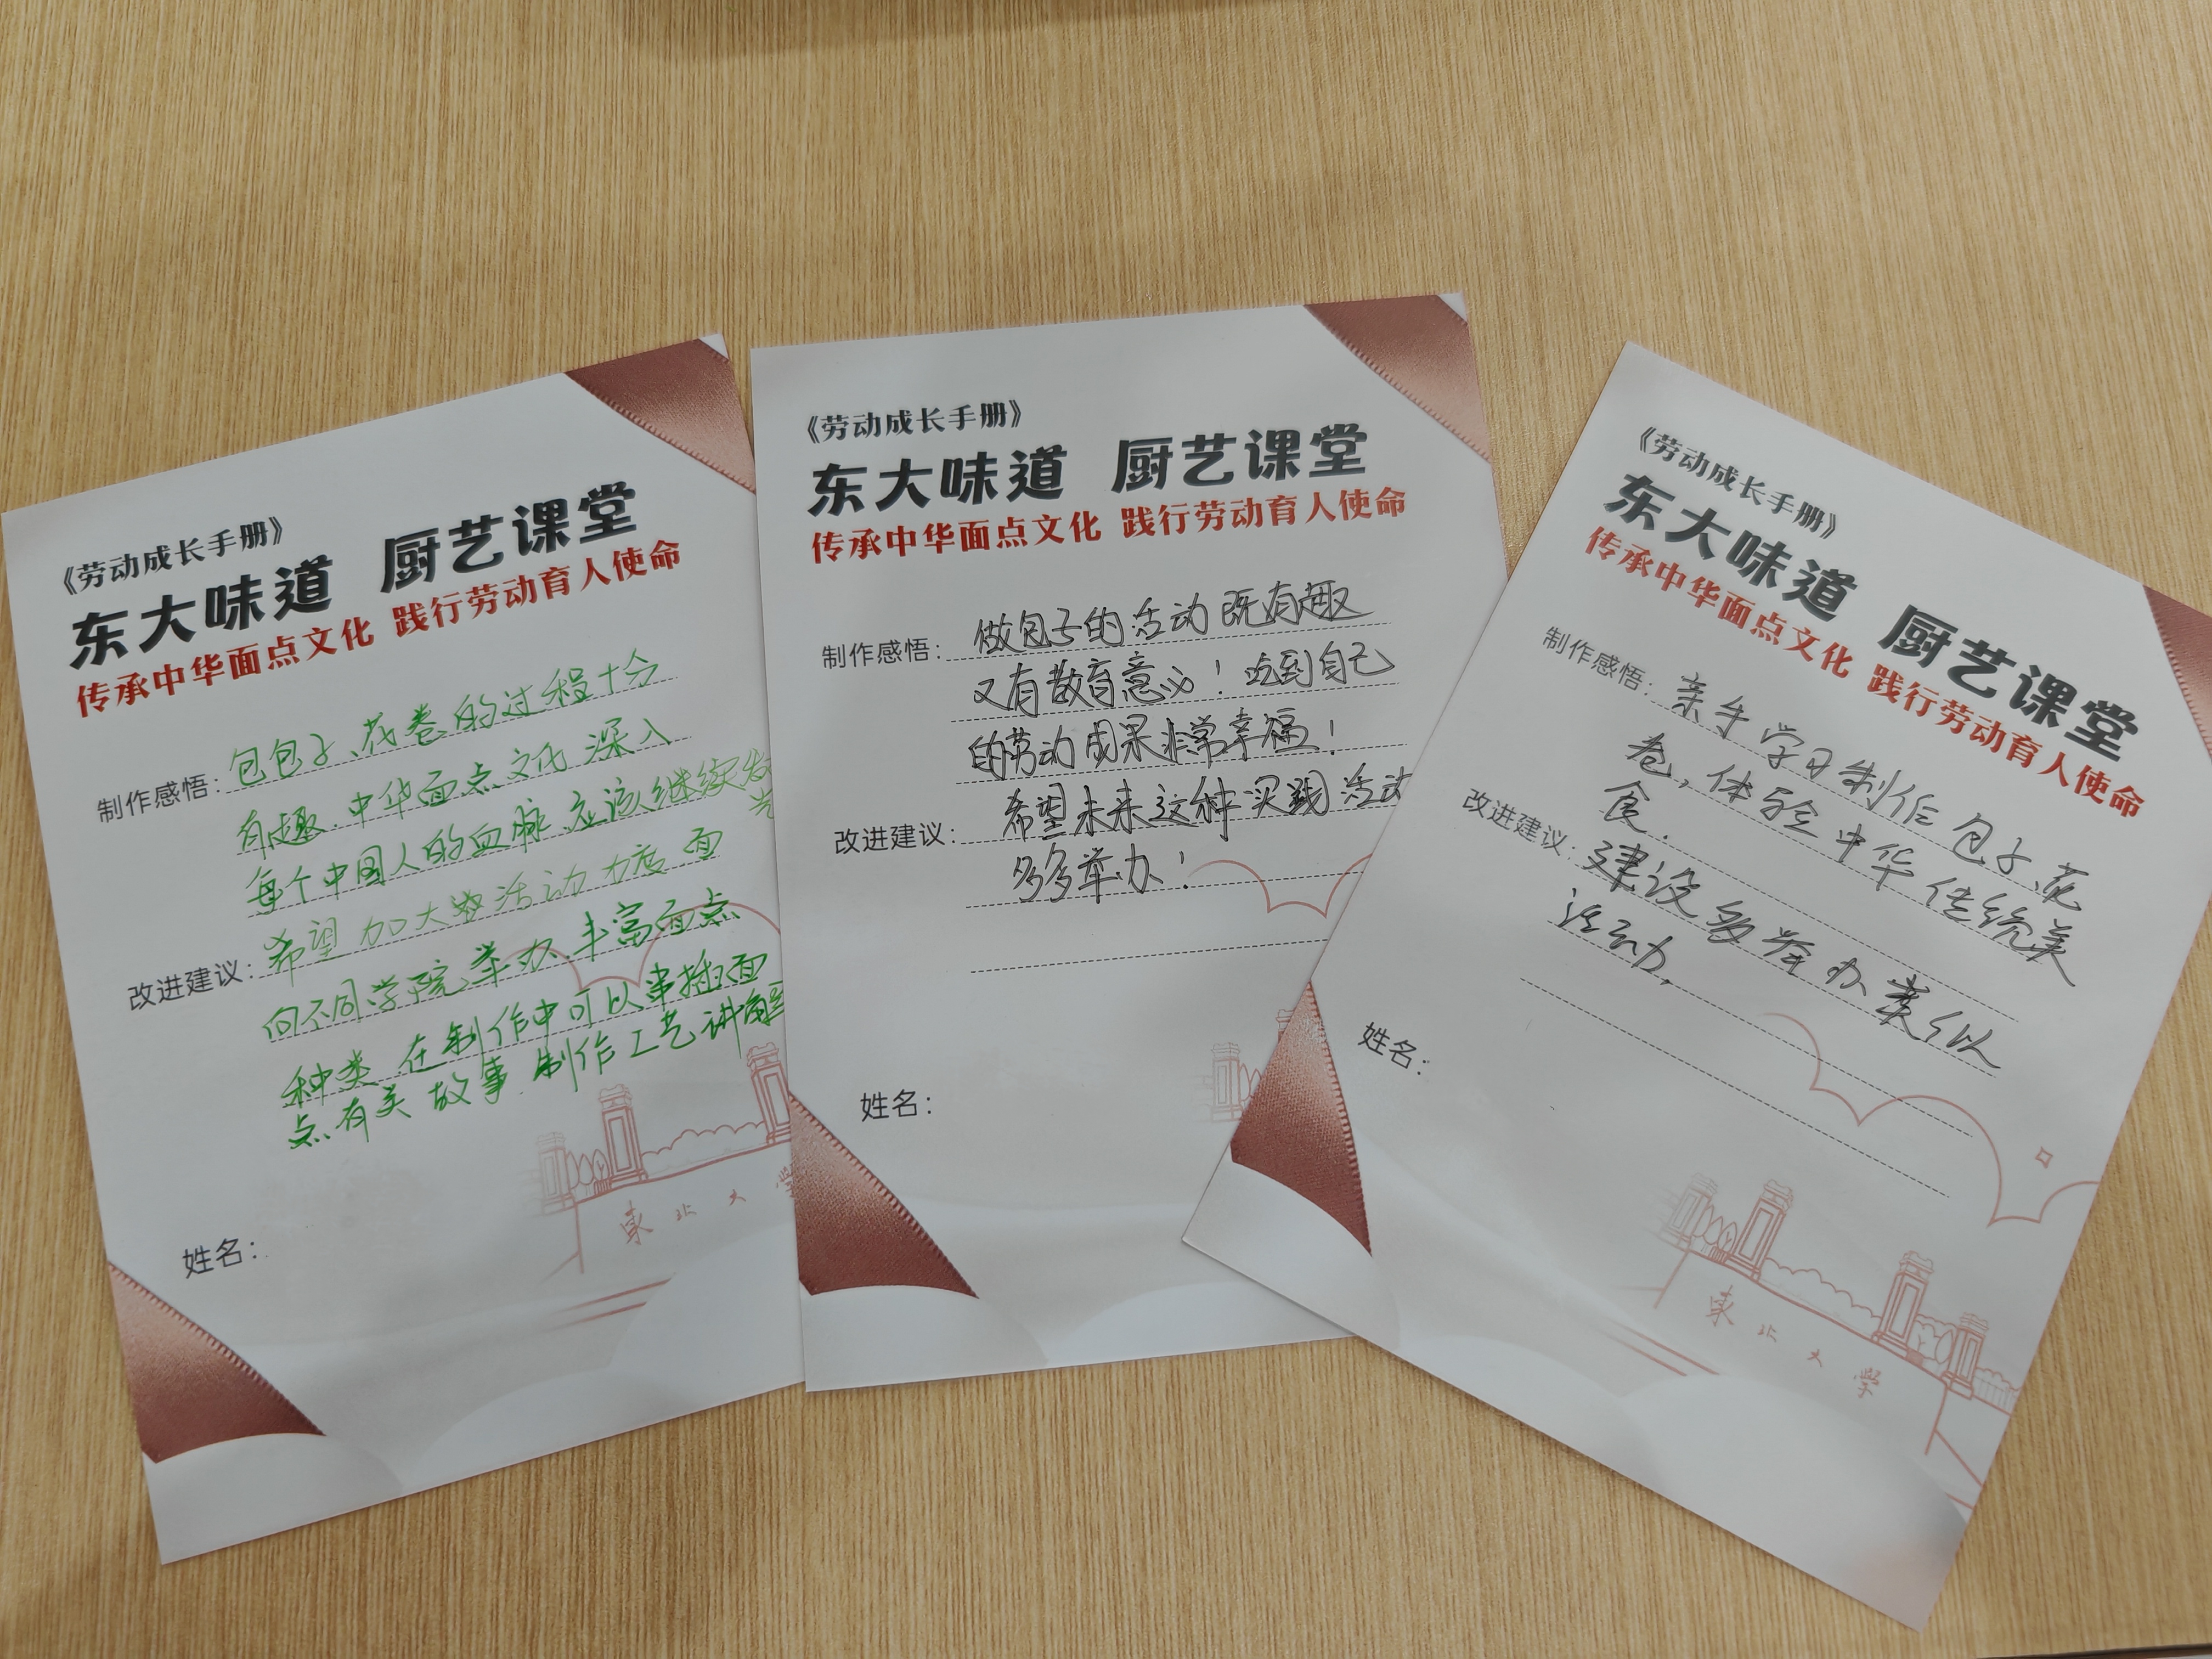 《劳动成长手册》
东大味道 厨艺课堂
传承中华面点文化 践行劳动育人使命
制作感悟：包包子、花卷的过程十分
有趣.中华面点文化深入
每个中国人的血脉.应该继续发
改进建议：希望加大 活动力度 面
向不同学院举办.丰富面点
种类 在制作中可以串插面
点有关故事.制作工艺讲解
姓名：
東北大學
《劳动成长手册》
东大味道 厨艺课堂
传承中华面点文化 践行劳动育人使命
制作感悟：做包子的活动既有趣
又有教育意义！吃到自己
的劳动成果非常幸福！
改进建议：希望未来这种实践活动
多多举办！
姓名：
《劳动成长手册》
东大味道 厨艺课堂
传承中华面点文化 践行劳动育人使命
制作感悟：亲手学习制作包子、花
卷，体验中华传统美
食.
改进建议：建设多举办类似
活动.
姓名：
東北大學